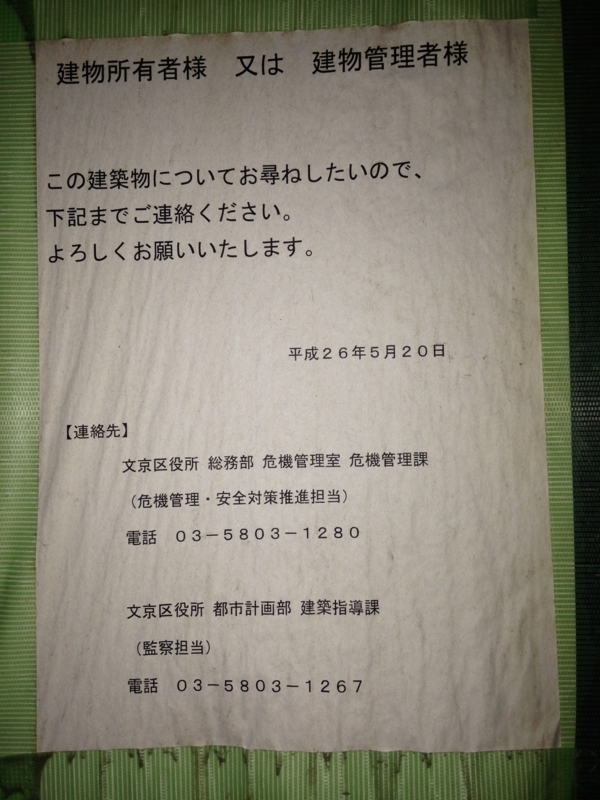 建物所有者様　又は　建物管理者様
この建築物についてお尋ねしたいので、
下記までご連絡ください。
よろしくお願いいたします。
平成２６年５月２０日
【連絡先】
文京区役所 総務部 危機管理室 危機管理課
（危機管理・安全対策推進担当）
電話　０３－５８０３－１２８０
文京区役所 都市計画部 建築指導課
（監察担当）
電話　０３－５８０３－１２６７